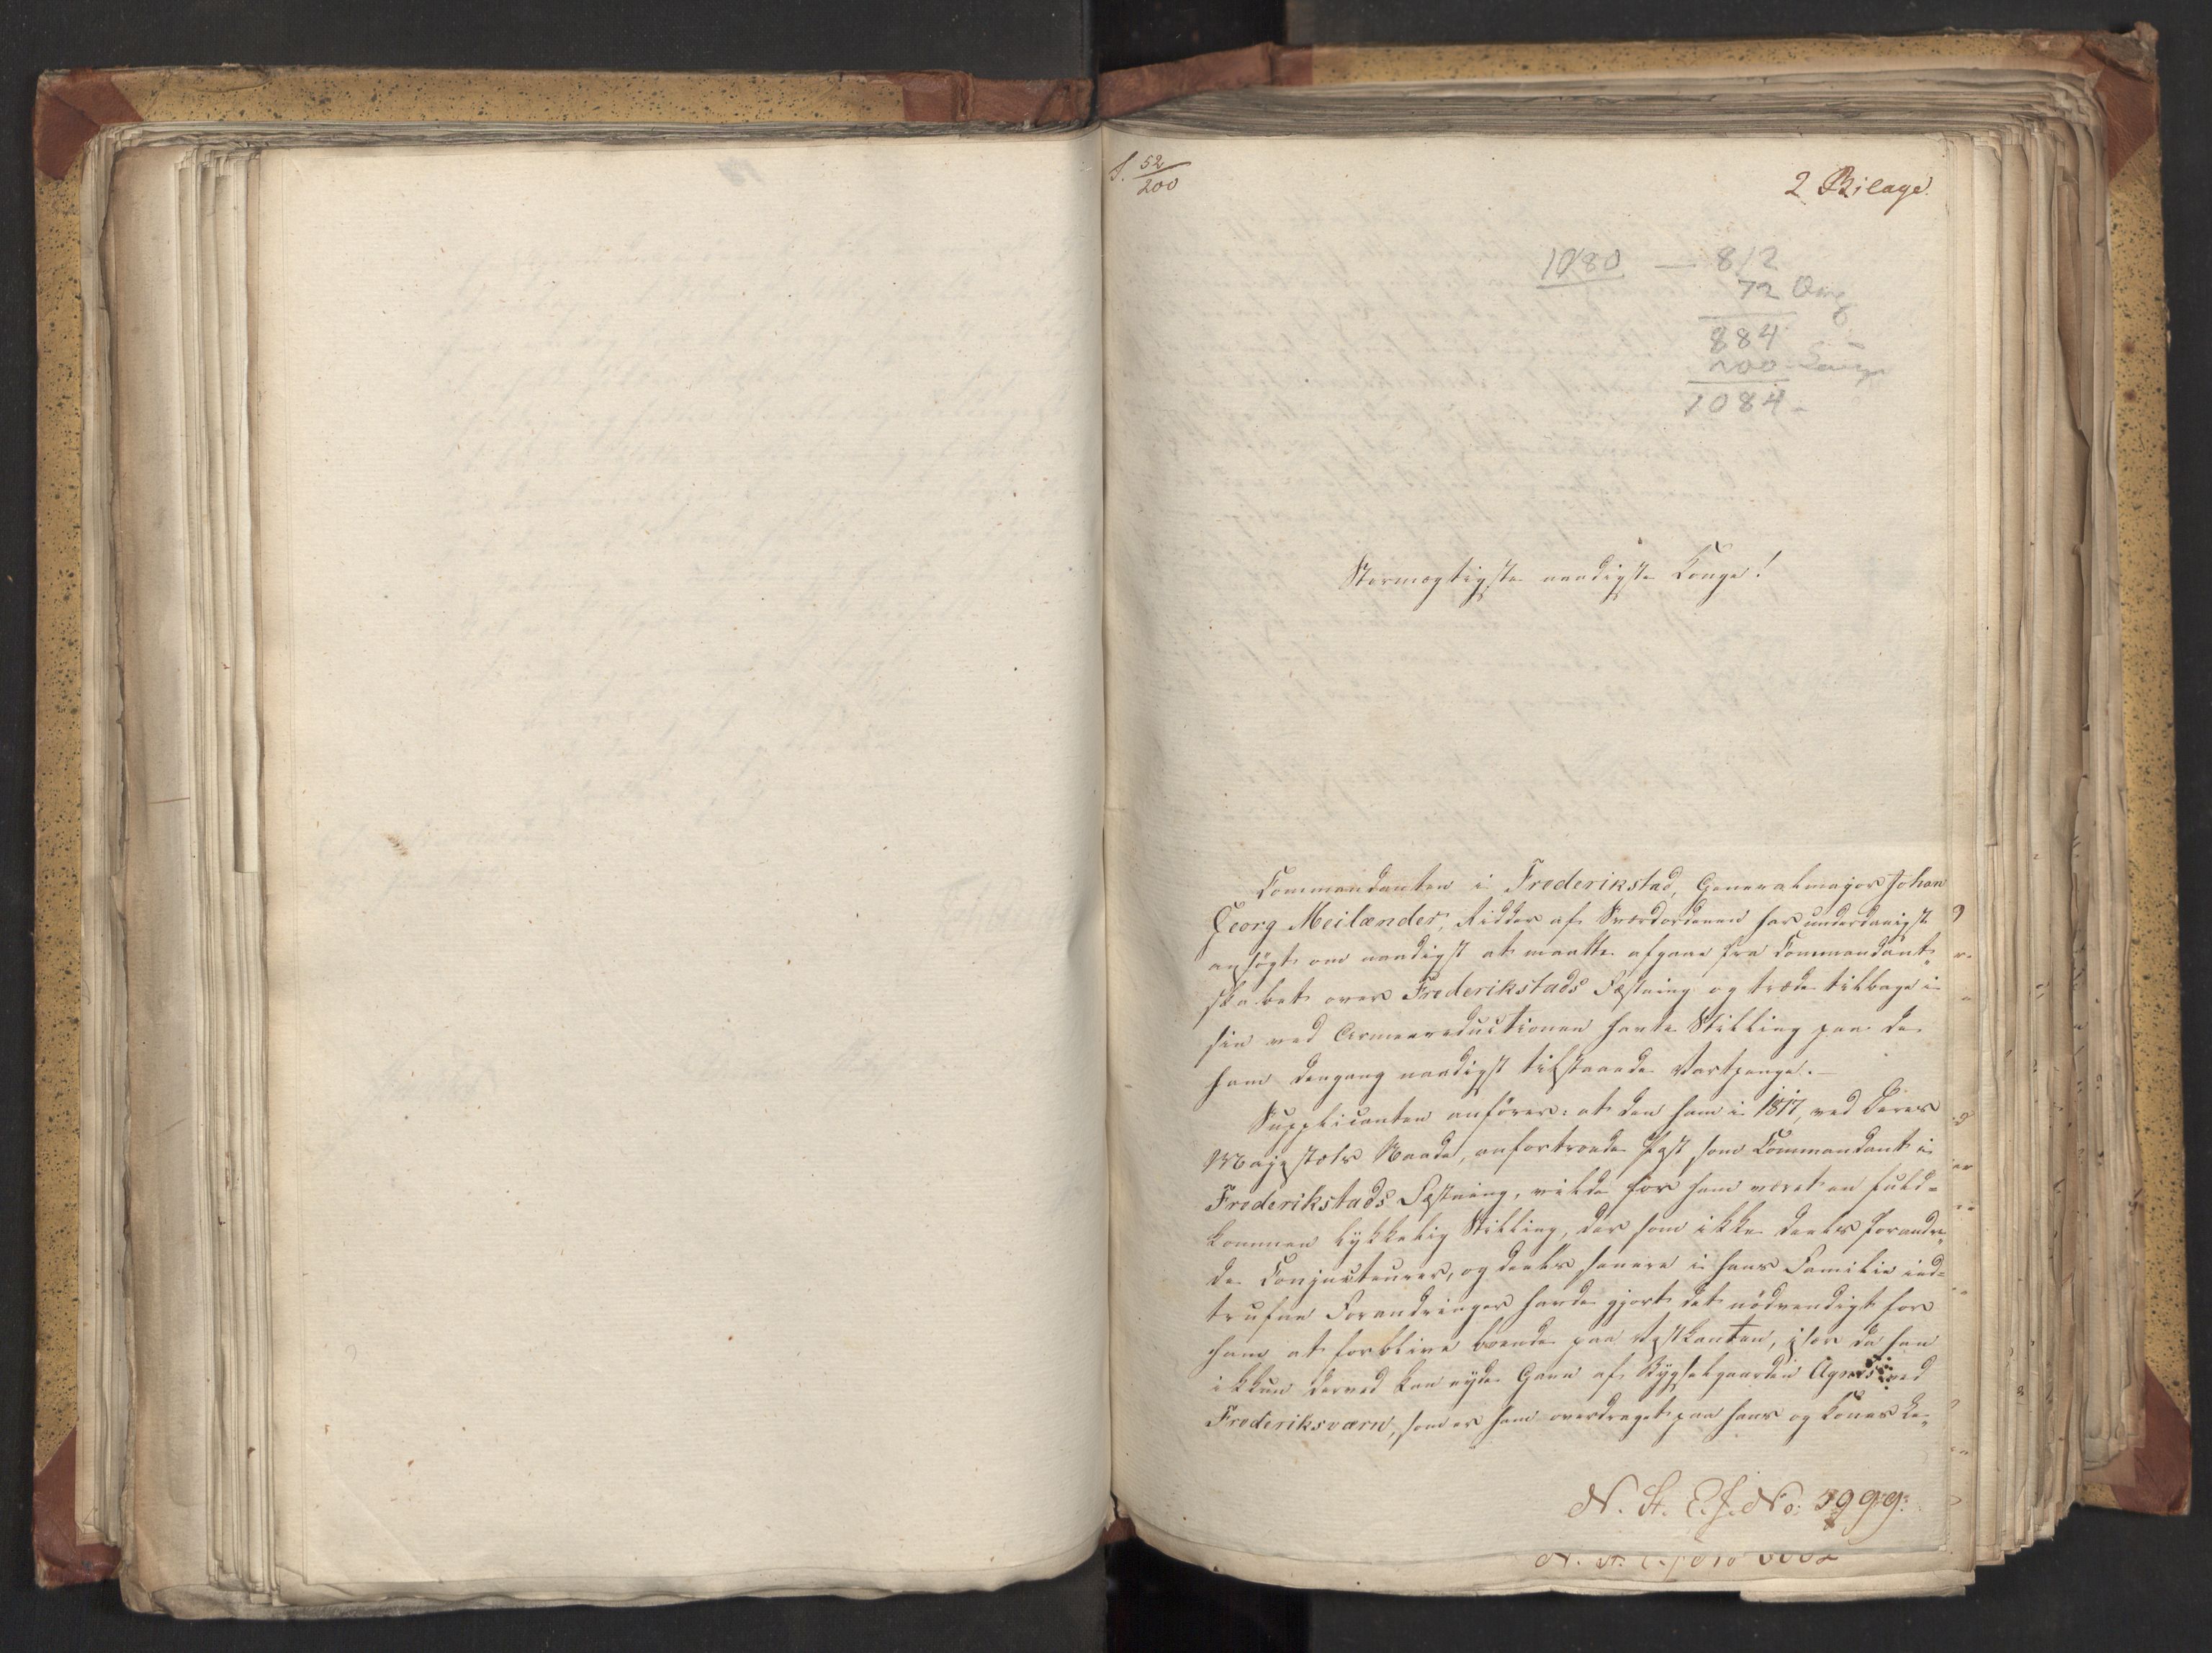 S. 52/200
2 Bilage.
1080 — 812
72
884
200
1084
Stormægtigste naadigste Konge!
Commandanten i Frederikstad, Generalmajor Johan
Georg Meilænder, Ridder af Sværdordenen har underdanigst
ansøgt om naadigst at maatte afgaae fra Commandant-
skabet over Frederikstads Fæstning og træde tilbage i
sin ved Armeereductionen havte Stilling paa de
ham dengang naadigst tilstaaede Vartpenge. —
Supplicanten anfører: at den ham i 1817, ved Deres
Majestæts Naade, anfortroede Post som Commandant i
Frederikstads Fæstning, vilde for ham været en fuld-
kommen lykkelig Stilling, der som ikke deels forandre-
de Conjuncteurer, og deels senere i hans Familie ind-
trufne Forandringer havde gjort det nødvendigt for
ham at forblive boende paa Vestkanten, især da han
ikkun derved kan nyde Gavn af Bygselgaarden Agnes ved
Frederiksværn, som er ham overdraget paa hans og Kones Le-
N. St. E. J. No: 3999.